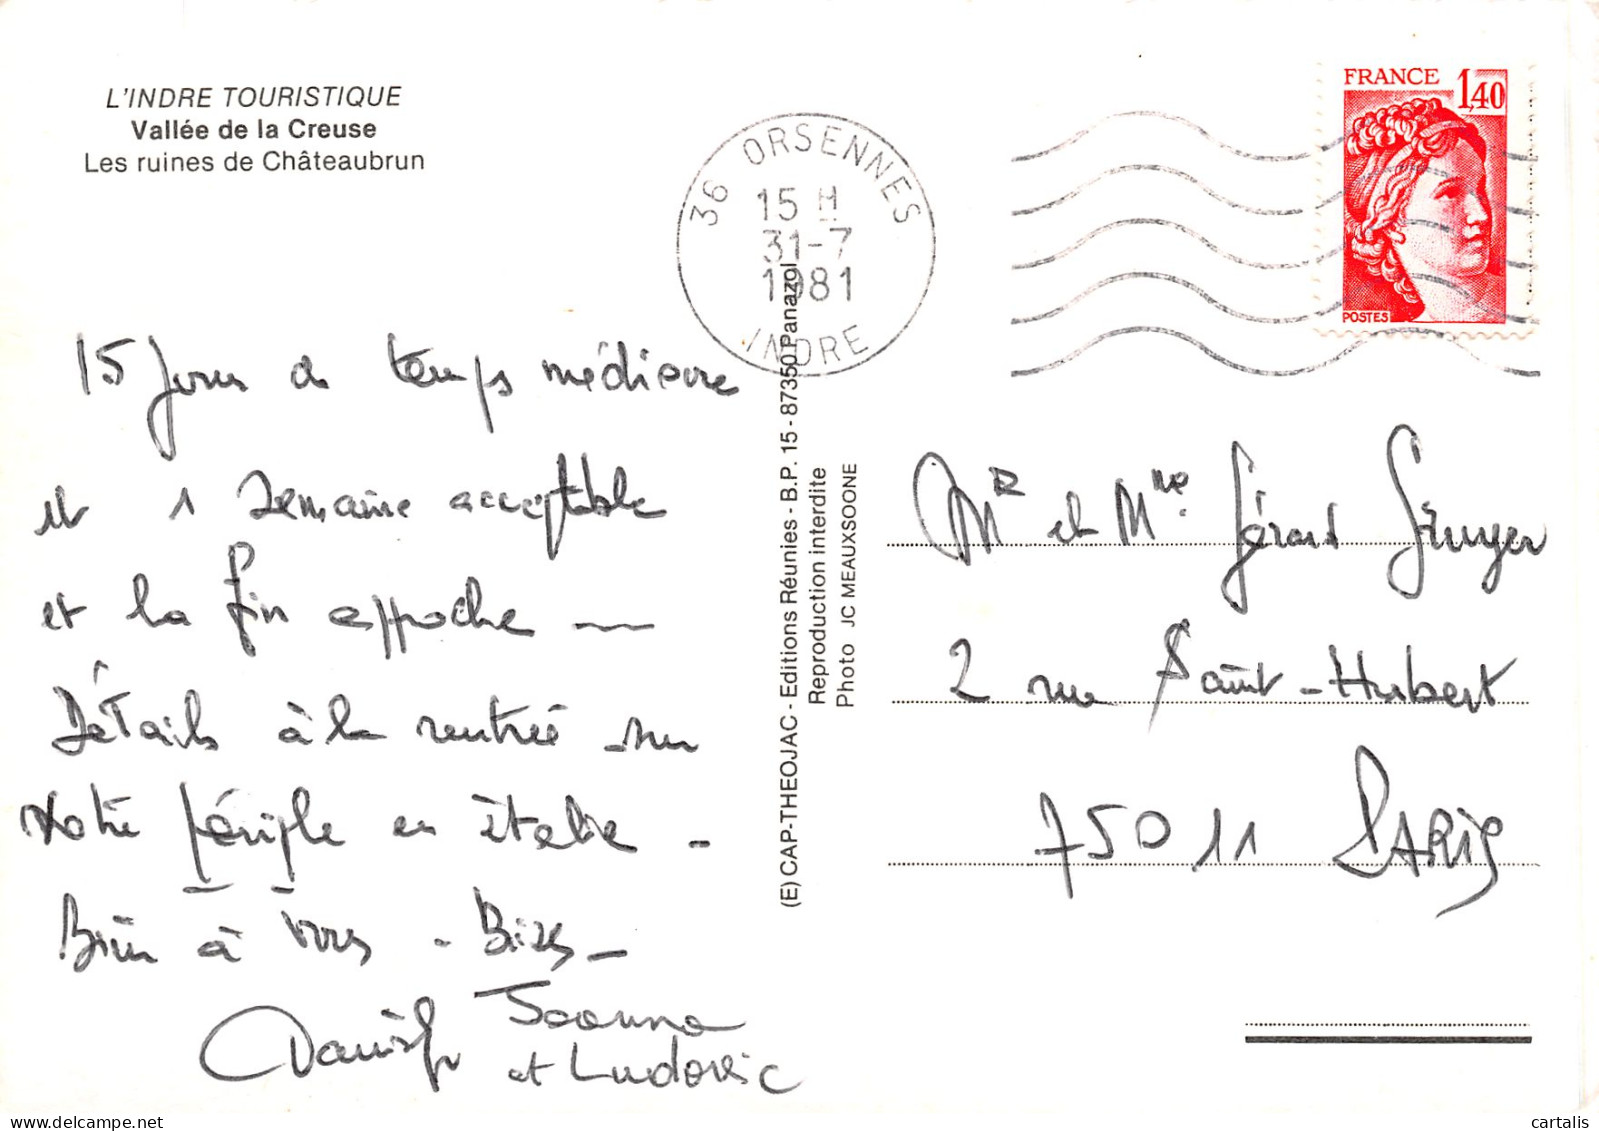 L'INDRE TOURISTIQUE
Vallée de la Creuse
Les ruines de Châteaubrun
36 ORSENNES
15 H
31-7
1981
INDRE
FRANCE 1,40
POSTES
15 jours de temps médiocre
et 1 semaine acceptable
et la fin approche
Détails à la rentrée sur
notre périple en italie -
Bien à vous - Bises -
Joanna
et Ludovic
(E) CAP-THEOJAC - Editions Réunies - B.P. 15 - 87350 Panazol
Reproduction interdite
Photo JC MEAUXSOONE
Mr et Mme Gérard
2 rue Saint-Hubert
75011 PARIS
cartalis